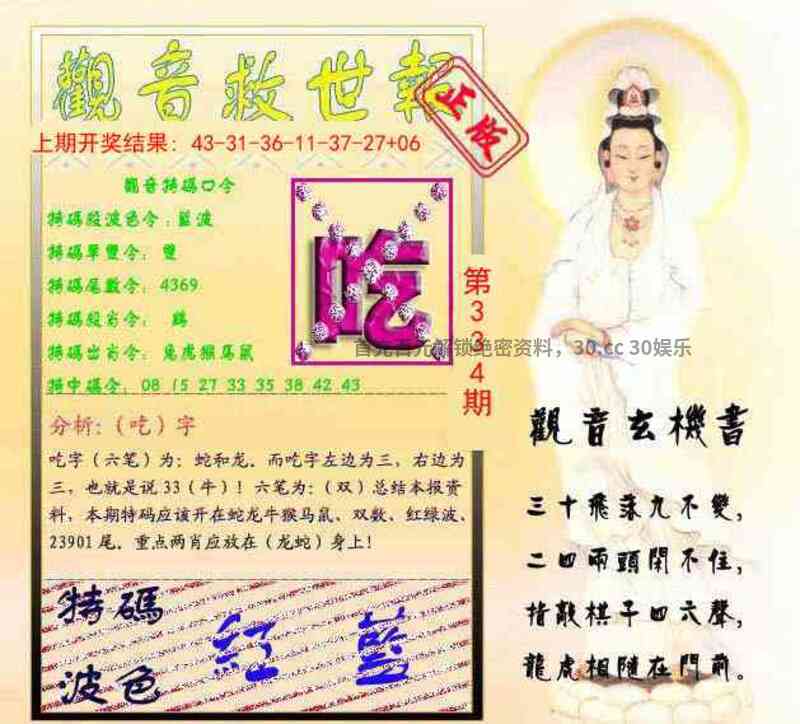 觀音救世報
正版
上期开奖结果：43-31-36-11-37-27+06
觀音特碼口令
特碼段波色令：藍波
特碼單雙令：雙
特碼尾數令：4369
特碼段肖令：鷄
特碼出肖令：兔虎猴马鼠
特中碼令：08 15 27 33 35 38 42 43
吃
第334期
首充百元解锁绝密资料，30.cc 30娱乐
分析：（吃）字
吃字（六笔）为：蛇和龙．而吃字左边为三，右边为
三，也就是说33（牛）！六笔为：（双）总结本报资
料，本期特码应该开在蛇龙牛猴马鼠、双数、红绿波、
23901尾．重点两肖应放在（龙蛇）身上！
特碼
波色
紅 藍
觀音玄機書
三十飛落九不變，
二四兩頭閑不住，
指敲棋子四六聲，
龍虎相隨在門前。